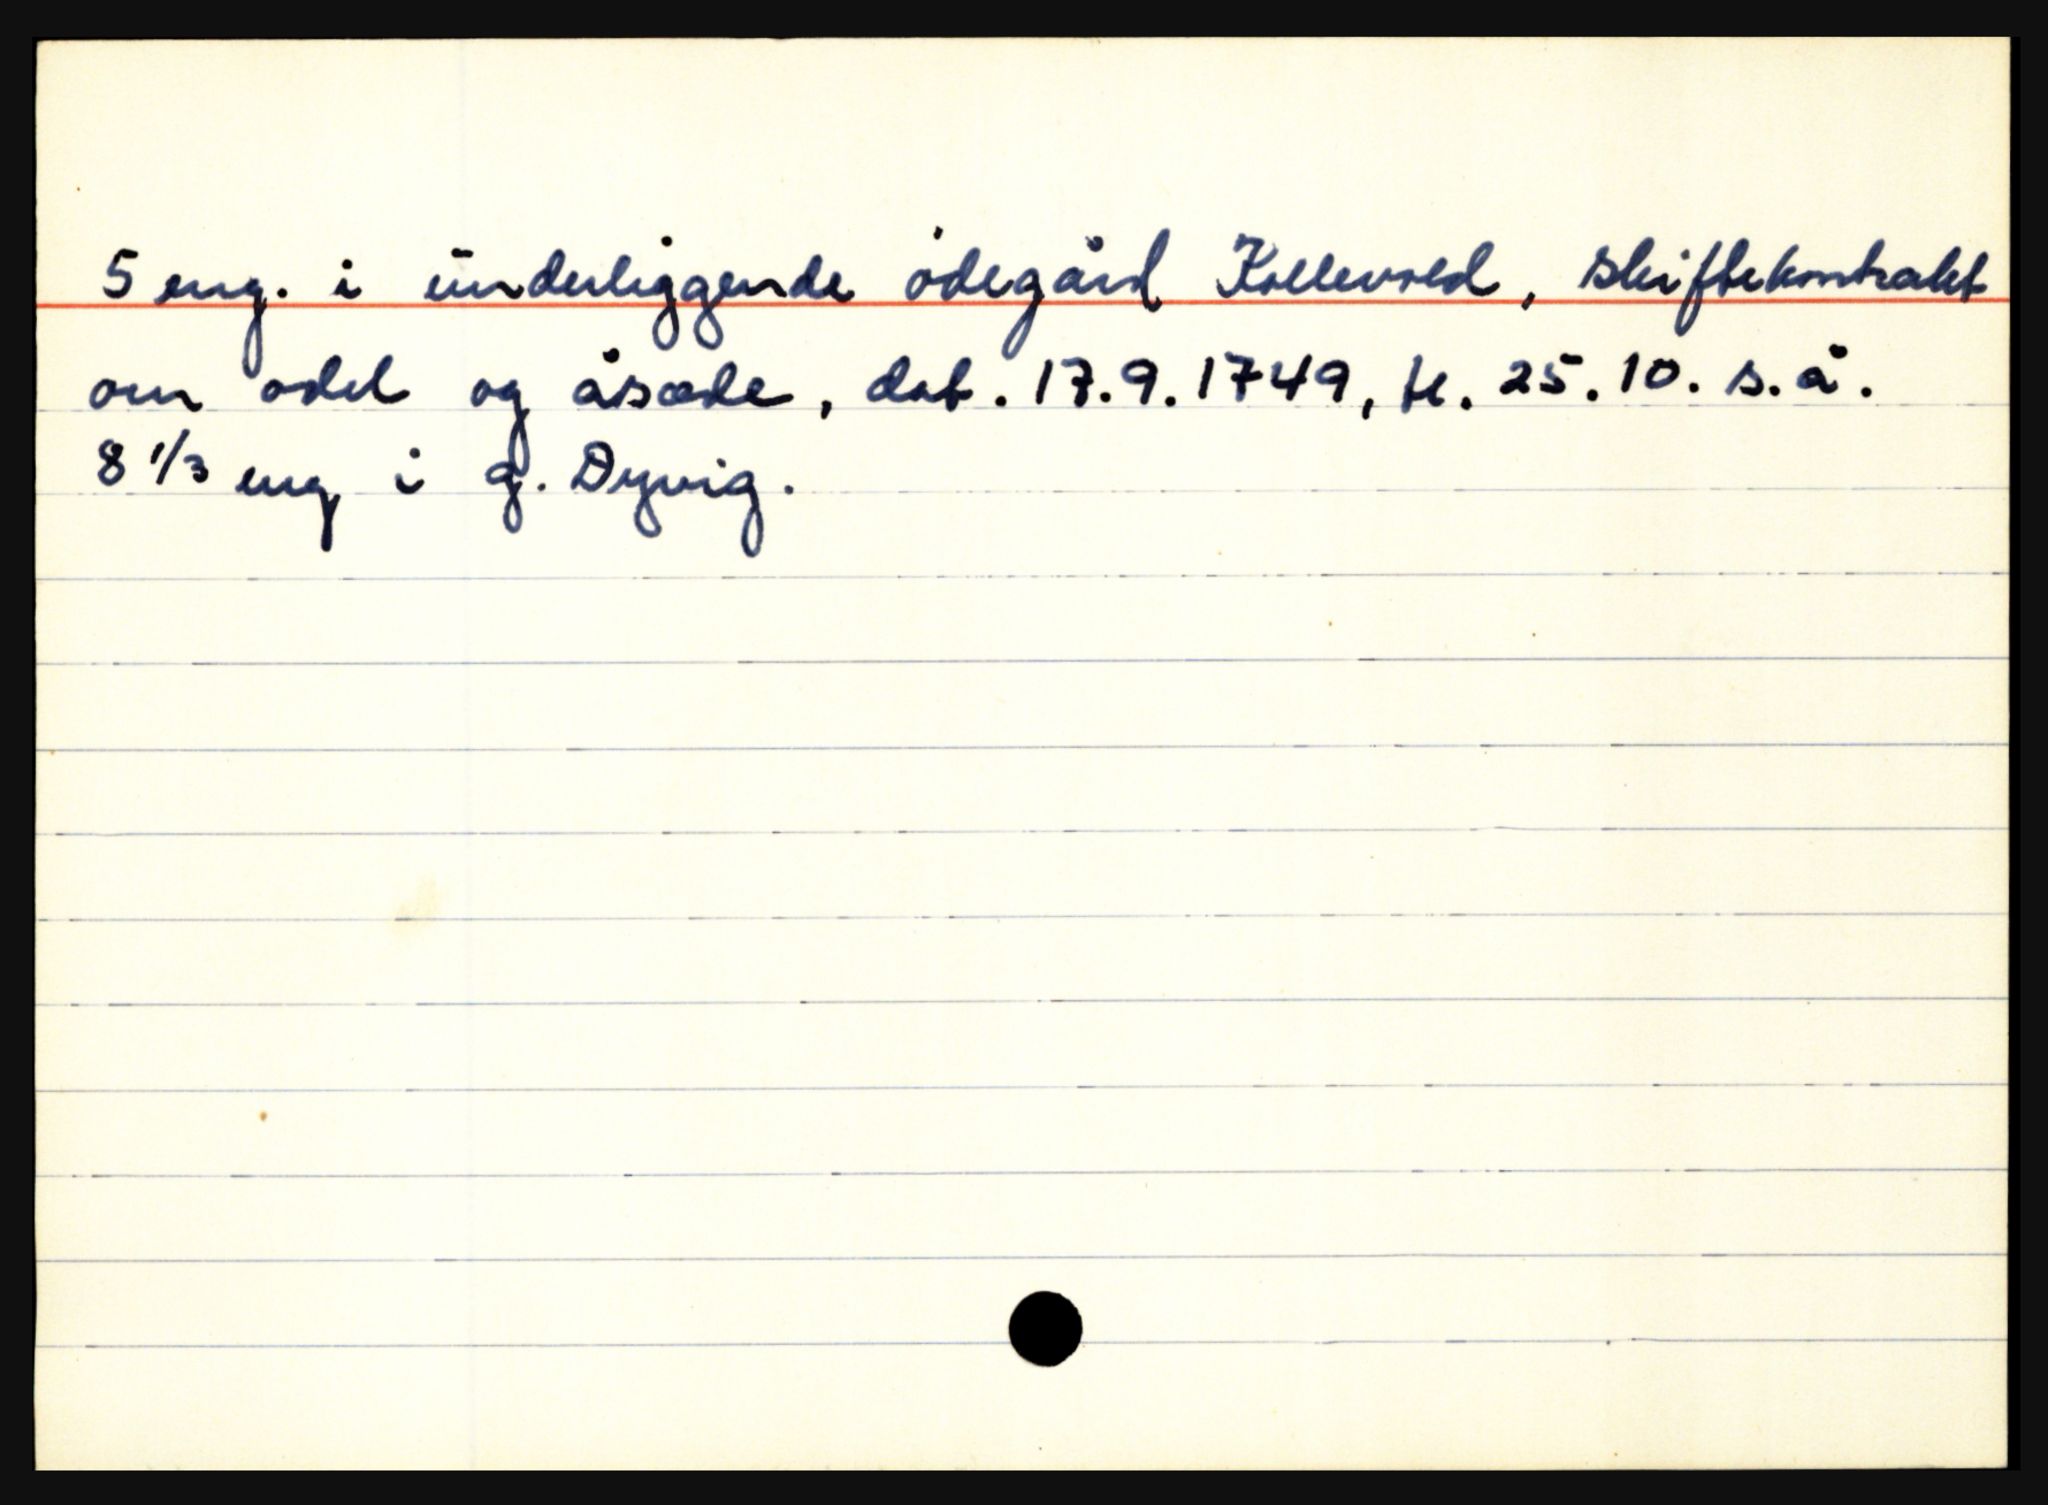 5 eng. i underliggende ødegård Kollevold, skiftekontrakt
om odel og åsæde, dat. 17.9.1749, tl. 25.10. s.å.
8 1/3 eng i g. Dyvig.